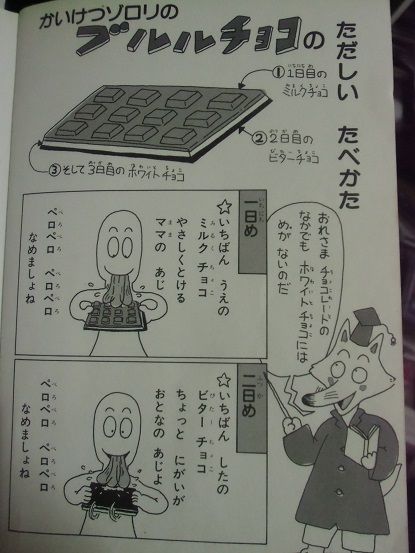 かいけつゾロリの
ブルルチョコの
ただしい たべかた
①1日目の
ミルクチョコ
②2日目の
ビターチョコ
③そして3日目のホワイトチョコ
おれさま チョコレートの
なかでも ホワイトチョコには
めが ないのだ
一日め
☆いちばん うえの
ミルク チョコ
やさしくとける
ママの あじ
ペロペロ ペロペロ
なめましょね
二日め
☆いちばん したの
ビター チョコ
ちょっと にがいが
おとなの あじよ
ペロペロ ペロペロ
なめましょね